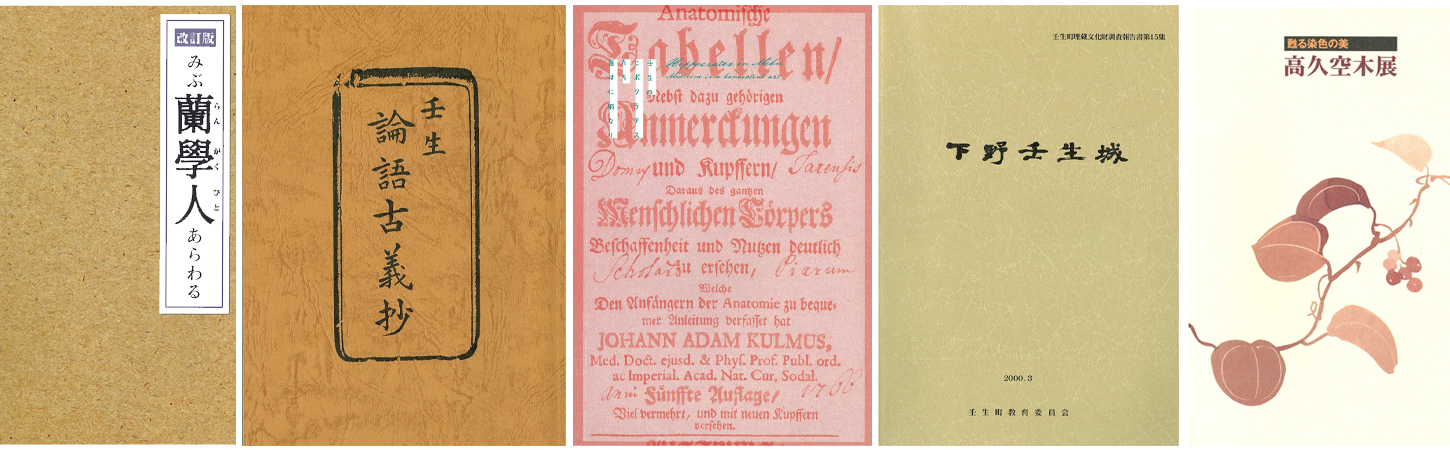 改訂版
みぶ蘭學人あらわる
らん
がく
びと
壬生
論語古義抄
Anatomische
Tabellen/
壬生の
ヒポクラテス
たち
Hippocrates in Mibu
Medicine is a benevolent art
Nebst dazu gehörigen
Anmerckungen
und Kupffern/
Daraus des gantzen
Menschlichen Cörpers
Beschaffenheit und Nutzen deutlich
zu ersehen,
Welche
Den Anfängern der Anatomie zu beque-
mer Anleitung verfasset hat
JOHANN ADAM KULMUS,
Med. Doct. ejusd. & Phys. Prof. Publ. ord.
ac Imperial. Acad. Nat. Cur. Sodal.
Fünffte Auflage/
Viel vermehrt, und mit neuen Kupffern
versehen.
壬生町埋蔵文化財調査報告書第15集
下野壬生城
2000.3
壬生町教育委員会
甦る染色の美
高久空木展